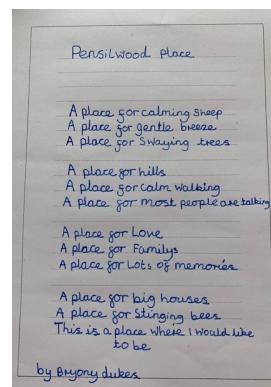 Pensilwood Place
A place for calming sheep
A place for gentle breeze
A place for Swaying trees
A place for hills
A place for calm walking
A place for most people are talking
A place for Love
A place for Familys
A place for Lots of memories
A place for big houses
A place for Stinging bees
This is a place where I would like
to be
by Bryony dukes